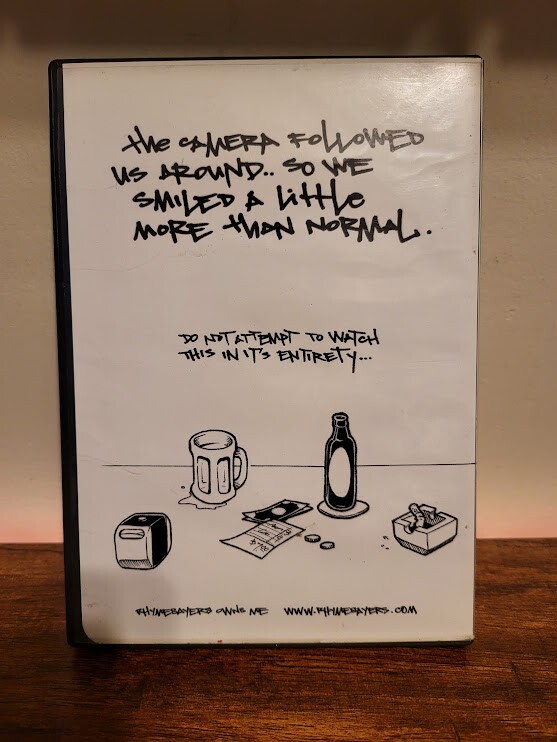 the CAMERA FOLLOWED
US AROUND.. SO WE
SMILED A little
MORE thAN NORMAL.
DO NOT ATTEMPT TO WATCH
THIS IN IT'S ENTIRETY...
RHYMESAYERS OWNS ME WWW.RHYMESAYERS.COM